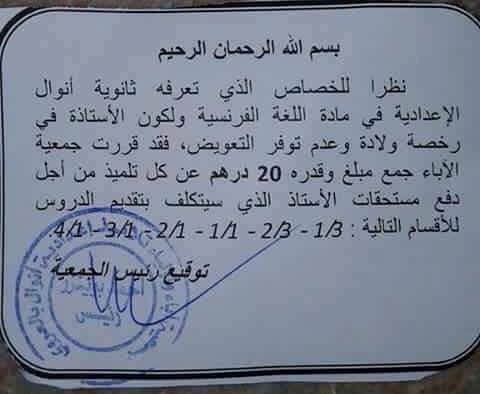 بسم الله الرحمان الرحيم
نظرا للخصاص الذي تعرفه ثانوية أنوال
الإعدادية في مادة اللغة الفرنسية ولكون الأستاذة في
رخصة ولادة وعدم توفر التعويض، فقد قررت جمعية
الآباء جمع مبلغ وقدره 20 درهم عن كل تلميذ من أجل
دفع مستحقات الأستاذ الذي سيتكلف بتقديم الدروس
للأقسام التالية : 1/3 - 2/3 - 1/1 - 2/1 - 3/1 - 4/1.
توقيع رئيس الجمعية
رئيس